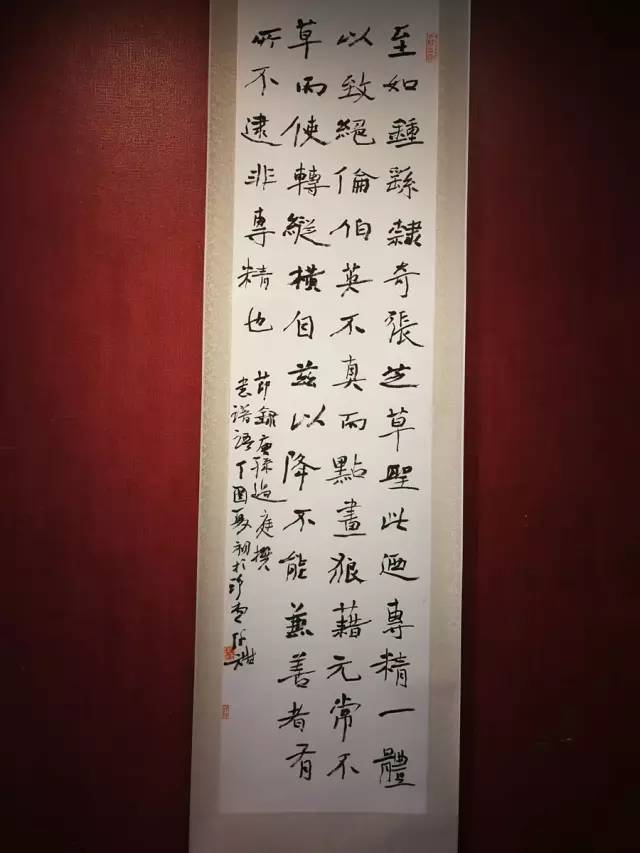 至如鍾繇隸奇張芝草聖此迺專精一體
以致絕倫伯英不真而點畫狼藉元常不
草而使轉縱橫自茲以降不能兼善者有
所不逮非專精也
節錄唐孫過庭撰
書譜語丁酉夏初於